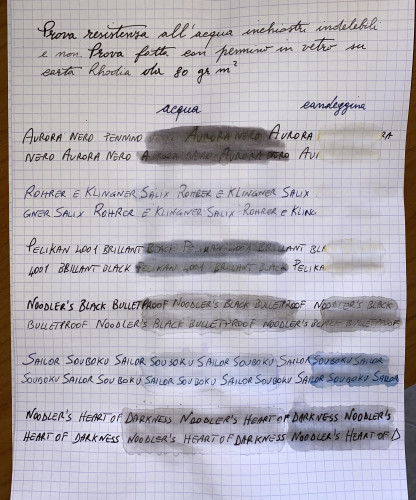 Prova resistenza all'acqua inchiostri indelebili
e non Prova fatta con pennino in vetro su
carta Rhodia da 80 gr m²
acqua candeggina
AURORA NERO PENNINO AURORA NERO AURORA RA
NERO AURORA NERO AURORA NERO AURORA NERO AU
ROHRER E KLINGNER SALIX ROHRER E KLINGNER SALIX
GNER SALIX ROHRER E KLINGNER SALIX ROHRER E KLING
PELIKAN 4001 BRILLANT BLACK PELIKAN 4001 BRILLANT BLA
4001 BRILLANT BLACK PELIKAN 4001 BRILLANT BLACK PELIKA
NOODLER'S BLACK BULLETPROOF NOODLER'S BLACK BULLETPROOF NOODLER'S BLACK
BULLETPROOF NOODLER'S BLACK BULLETPROOF NOODLER'S BLACK BULLETPROOF
SAILOR SOUBOKU SAILOR SOUBOKU SAILOR SOUBOKU SAILOR SOUBOKU SAILOR
SOUBOKU SAILOR SOUBOKU SAILOR SOUBOKU SAILOR SOUBOKU SAILOR SOUBOKU SAILOR
NOODLER'S HEART OF DARKNESS NOODLER'S HEART OF DARKNESS NOODLER'S
HEART OF DARKNESS NOODLER'S HEART OF DARKNESS NOODLER'S HEART OF D